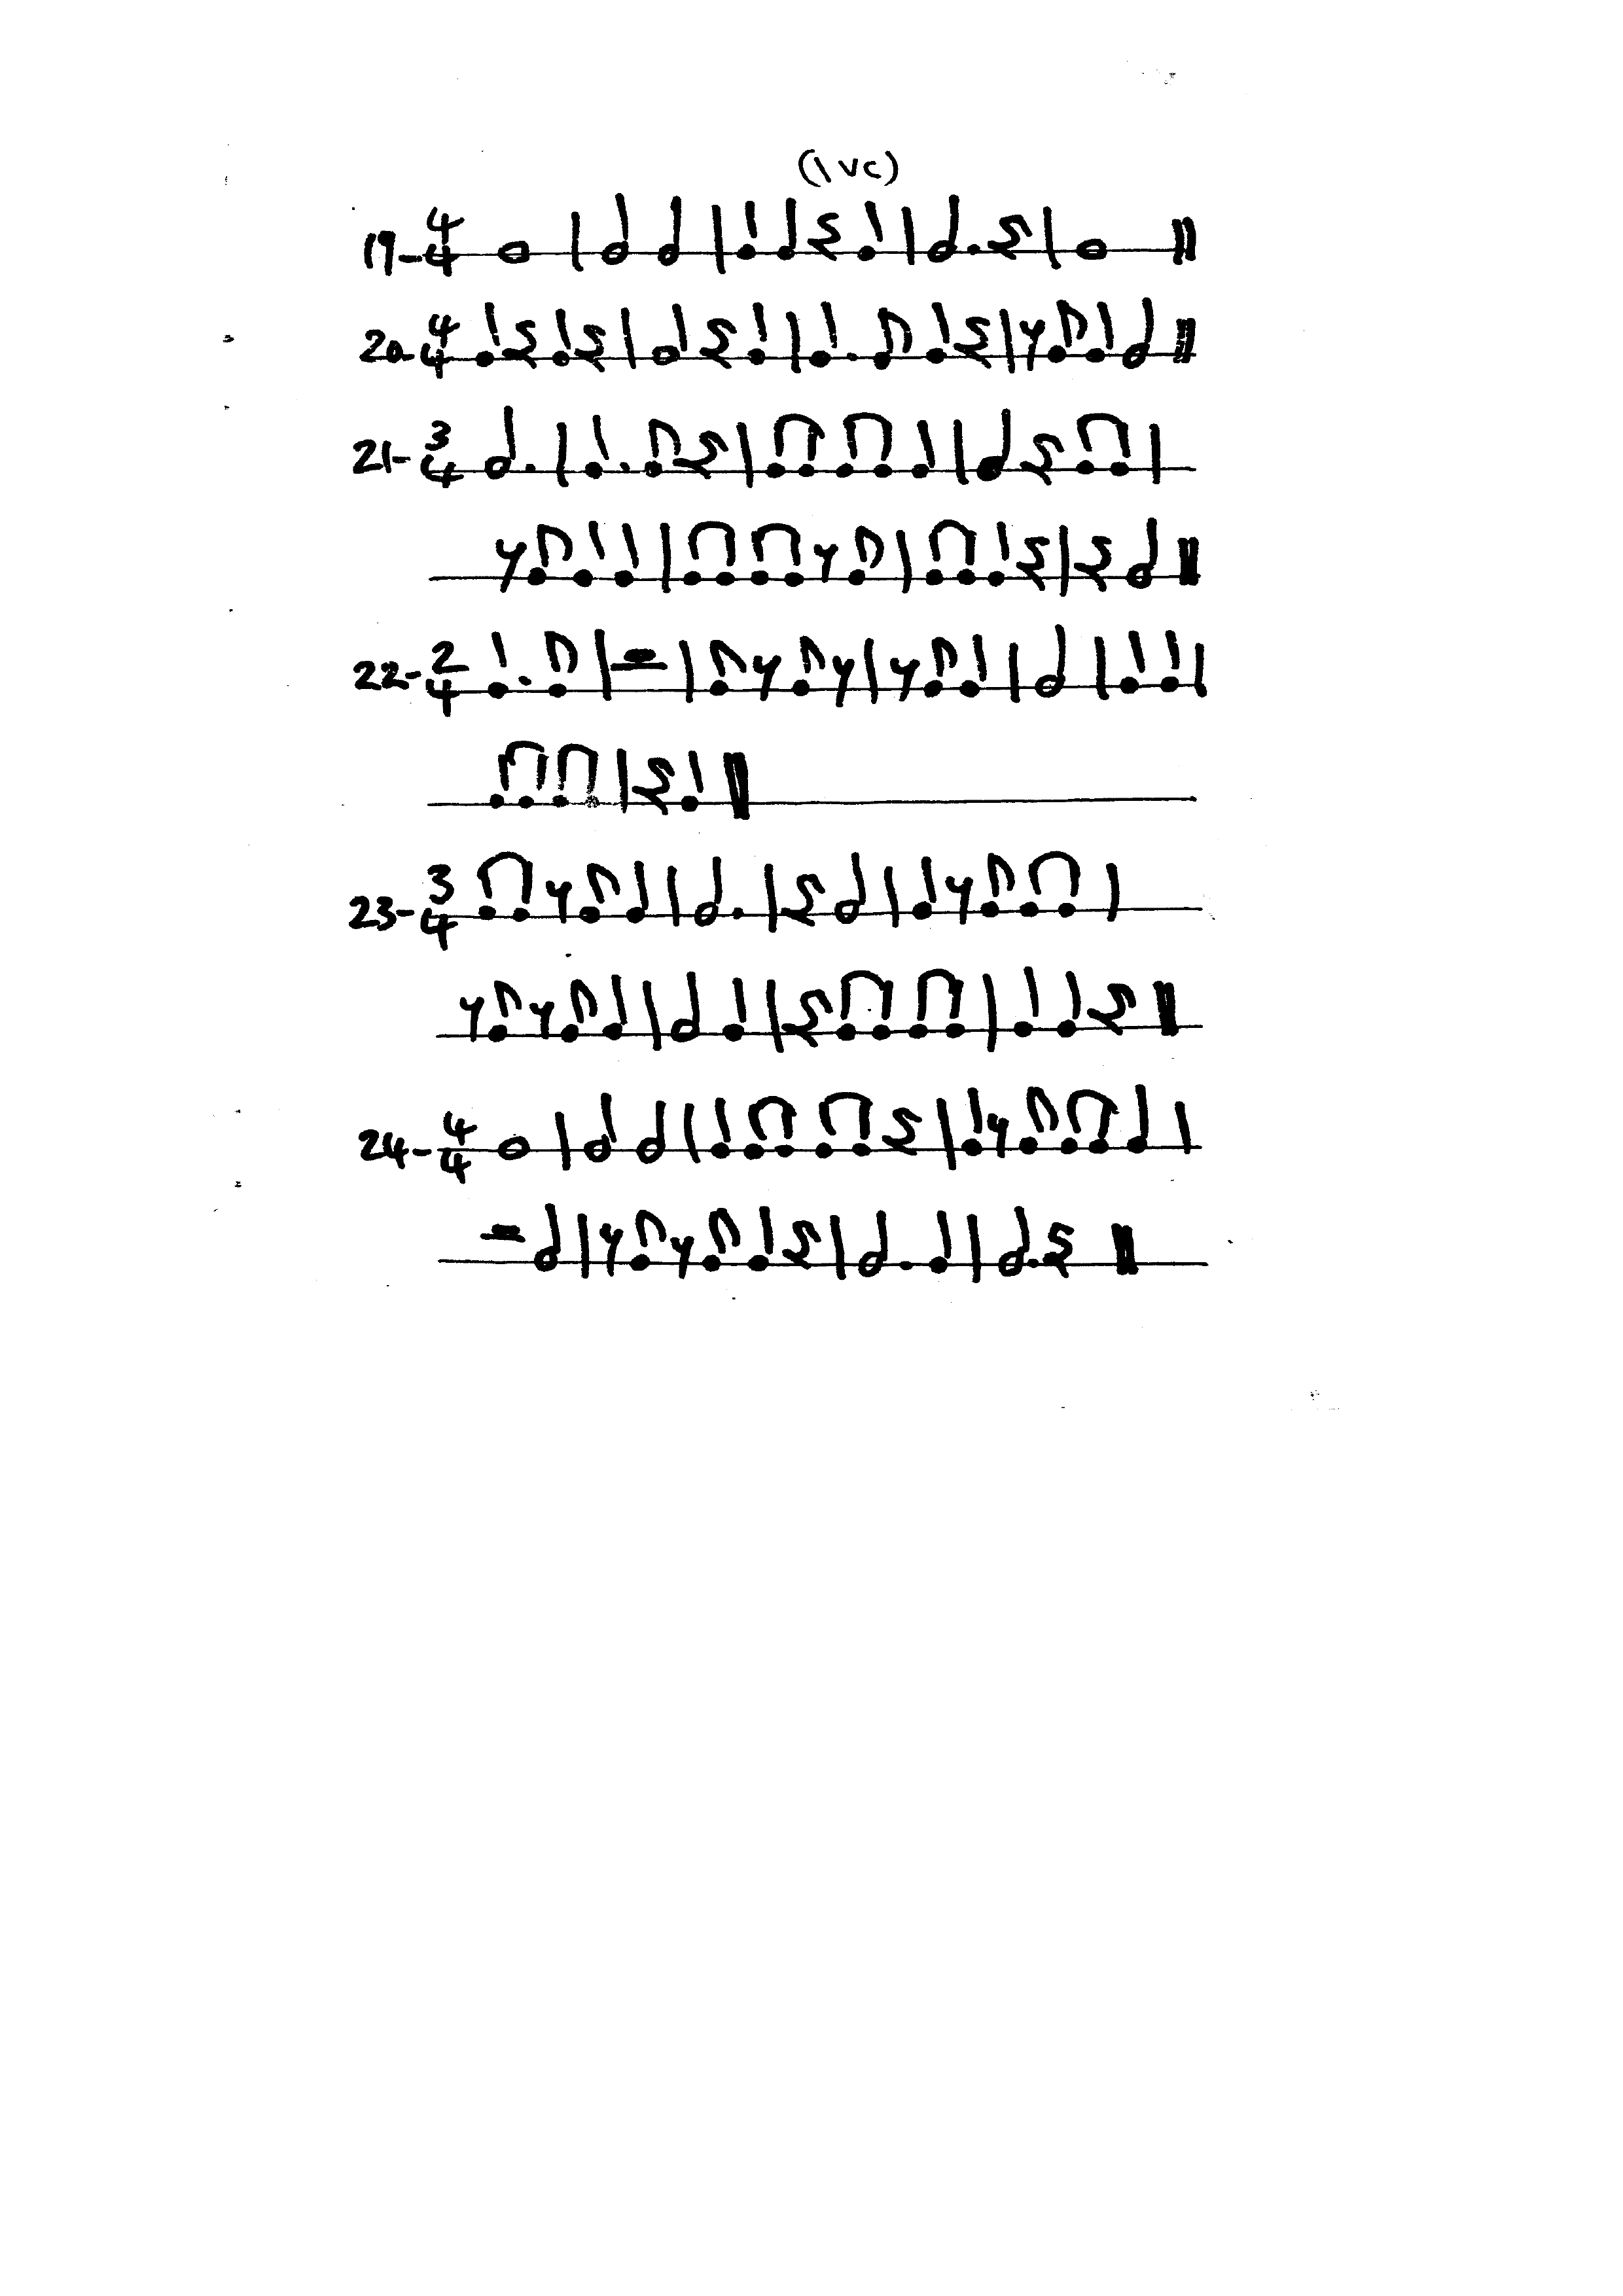 (IVC)
19- 4/4
20- 4/4
21- 3/4
22- 2/4
23- 3/4
24- 4/4